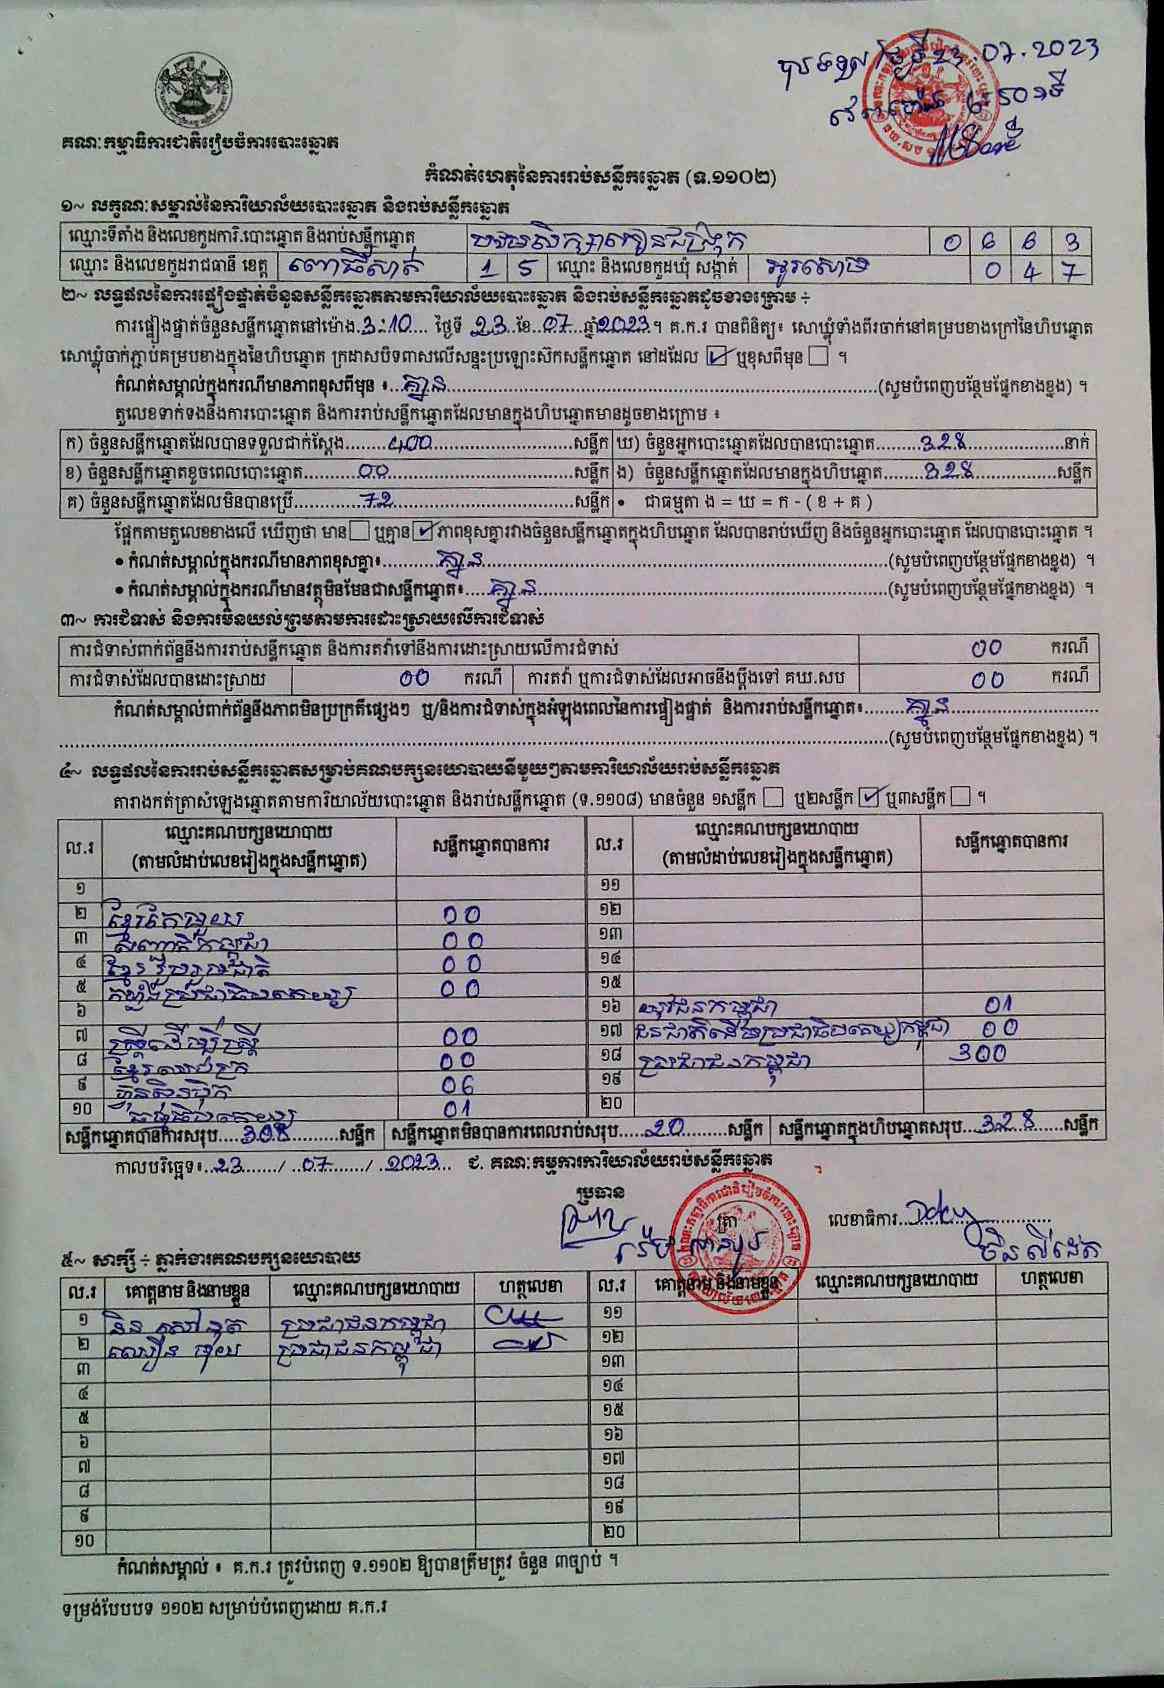 07.2023
6:50
គណៈកម្មាធិការជាតិរៀបចំការបោះឆ្នោត
កំណត់ហេតុនៃការរាប់សន្លឹកឆ្នោត (ទ.១១០២)
១~ លក្ខណៈសម្គាល់នៃការិយាល័យបោះឆ្នោត និងរាប់សន្លឹកឆ្នោត
ឈ្មោះទីតាំង និងលេខកូដការិ.បោះឆ្នោត និងរាប់សន្លឹកឆ្នោត 0 6 6 3
ឈ្មោះ និងលេខកូដរាជធានី ខេត្ត ពោធិ៍សាត់ 1 5 ឈ្មោះ និងលេខកូដឃុំ សង្កាត់ អូរសោម 0 4 7
២~ លទ្ធផលនៃការផ្ទៀងផ្ទាត់ចំនួនសន្លឹកឆ្នោតតាមការិយាល័យបោះឆ្នោត និងរាប់សន្លឹកឆ្នោតដូចខាងក្រោម ÷
ការផ្ទៀងផ្ទាត់ចំនួនសន្លឹកឆ្នោតនៅម៉ោង 3:10 ថ្ងៃទី 23 ខែ 07 ឆ្នាំ 2023 ។ គ.ក.រ បានពិនិត្យ៖ សោឃ្លុំទាំងពីរចាក់នៅគម្របខាងក្រៅនៃហិបឆ្នោត
សោឃ្លុំចាក់ភ្ជាប់គម្របខាងក្នុងនៃហិបឆ្នោត ក្រដាសបិទពាសលើសន្ទះប្រឡោះស៊កសន្លឹកឆ្នោត នៅដដែល ☑ ឬខុសពីមុន ☐ ។
កំណត់សម្គាល់ក្នុងករណីមានភាពខុសពីមុន ៖ គ្មាន (សូមបំពេញបន្ថែមផ្នែកខាងខ្នង) ។
តួលេខទាក់ទងនឹងការបោះឆ្នោត និងការរាប់សន្លឹកឆ្នោតដែលមានក្នុងហិបឆ្នោតមានដូចខាងក្រោម ៖
ក) ចំនួនសន្លឹកឆ្នោតដែលបានទទួលជាក់ស្តែង 400 សន្លឹក ឃ) ចំនួនអ្នកបោះឆ្នោតដែលបានបោះឆ្នោត 328 នាក់
ខ) ចំនួនសន្លឹកឆ្នោតខូចពេលបោះឆ្នោត 00 សន្លឹក ង) ចំនួនសន្លឹកឆ្នោតដែលមានក្នុងហិបឆ្នោត 328 សន្លឹក
គ) ចំនួនសន្លឹកឆ្នោតដែលមិនបានប្រើ 72 សន្លឹក • ជាធម្មតា ង = ឃ = ក - ( ខ + គ )
ផ្អែកតាមតួលេខខាងលើ ឃើញថា មាន ☐ ឬគ្មាន ☑ ភាពខុសគ្នារវាងចំនួនសន្លឹកឆ្នោតក្នុងហិបឆ្នោត ដែលបានរាប់ឃើញ និងចំនួនអ្នកបោះឆ្នោត ដែលបានបោះឆ្នោត ។
• កំណត់សម្គាល់ក្នុងករណីមានភាពខុសគ្នា៖ គ្មាន (សូមបំពេញបន្ថែមផ្នែកខាងខ្នង) ។
• កំណត់សម្គាល់ក្នុងករណីមានវត្ថុមិនមែនជាសន្លឹកឆ្នោត៖ គ្មាន (សូមបំពេញបន្ថែមផ្នែកខាងខ្នង) ។
៣~ ការជំទាស់ និងការមិនយល់ព្រមតាមការដោះស្រាយលើការជំទាស់
ការជំទាស់ពាក់ព័ន្ធនឹងការរាប់សន្លឹកឆ្នោត និងការតវ៉ាទៅនឹងការដោះស្រាយលើការជំទាស់ 00 ករណី
ការជំទាស់ដែលបានដោះស្រាយ 00 ករណី ការតវ៉ា ឬការជំទាស់ដែលអាចនឹងប្តឹងទៅ គឃ.សប 00 ករណី
កំណត់សម្គាល់ពាក់ព័ន្ធនឹងភាពមិនប្រក្រតីផ្សេងៗ ឬ/និងការជំទាស់ក្នុងអំឡុងពេលនៃការផ្ទៀងផ្ទាត់ និងការរាប់សន្លឹកឆ្នោត៖ គ្មាន
(សូមបំពេញបន្ថែមផ្នែកខាងខ្នង) ។
៤~ លទ្ធផលនៃការរាប់សន្លឹកឆ្នោតសម្រាប់គណបក្សនយោបាយនីមួយៗតាមការិយាល័យរាប់សន្លឹកឆ្នោត
តារាងកត់ត្រាសំឡេងឆ្នោតតាមការិយាល័យបោះឆ្នោត និងរាប់សន្លឹកឆ្នោត (ទ.១១០៨) មានចំនួន ១សន្លឹក ☐ ឬ២សន្លឹក ☑ ឬ៣សន្លឹក ☐ ។
ល.រ ឈ្មោះគណបក្សនយោបាយ (តាមលំដាប់លេខរៀងក្នុងសន្លឹកឆ្នោត) សន្លឹកឆ្នោតបានការ ល.រ ឈ្មោះគណបក្សនយោបាយ (តាមលំដាប់លេខរៀងក្នុងសន្លឹកឆ្នោត) សន្លឹកឆ្នោតបានការ
១ ១១
២ ខ្មែរតែមួយ 00 ១២
៣ សញ្ជាតិកម្ពុជា 00 ១៣
៤ ខ្មែររួបរួមជាតិ 00 ១៤
៥ កម្លាំងប្រជាធិបតេយ្យ 00 ១៥
៦ ១៦ យុវជនកម្ពុជា 01
៧ ស្ត្រីដើម្បីស្ត្រី 00 ១៧ ជនជាតិដើមប្រជាធិបតេយ្យកម្ពុជា 00
៨ 00 ១៨ ប្រជាជនកម្ពុជា 300
៩ ហ៊្វុនស៊ិនប៉ិក 06 ១៩
១០ ធម្មាធិបតេយ្យ 01 ២០
សន្លឹកឆ្នោតបានការសរុប 308 សន្លឹក សន្លឹកឆ្នោតមិនបានការពេលរាប់សរុប 20 សន្លឹក សន្លឹកឆ្នោតក្នុងហិបឆ្នោតសរុប 328 សន្លឹក
កាលបរិច្ឆេទ៖ 23 / 07 / 2023 ជ. គណៈកម្មការការិយាល័យរាប់សន្លឹកឆ្នោត
ប្រធាន
ត្រា លេខាធិការ
៥~ សាក្សី ÷ ភ្នាក់ងារគណបក្សនយោបាយ
ល.រ គោត្តនាម និងនាមខ្លួន ឈ្មោះគណបក្សនយោបាយ ហត្ថលេខា ល.រ គោត្តនាម និងនាមខ្លួន ឈ្មោះគណបក្សនយោបាយ ហត្ថលេខា
១ ប្រជាជនកម្ពុជា ១១
២ ប្រជាជនកម្ពុជា ១២
៣ ១៣
៤ ១៤
៥ ១៥
៦ ១៦
៧ ១៧
៨ ១៨
៩ ១៩
១០ ២០
កំណត់សម្គាល់ ៖ គ.ក.រ ត្រូវបំពេញ ទ.១១០២ ឱ្យបានត្រឹមត្រូវ ចំនួន ៣ច្បាប់ ។
ទម្រង់បែបបទ ១១០២ សម្រាប់បំពេញដោយ គ.ក.រ